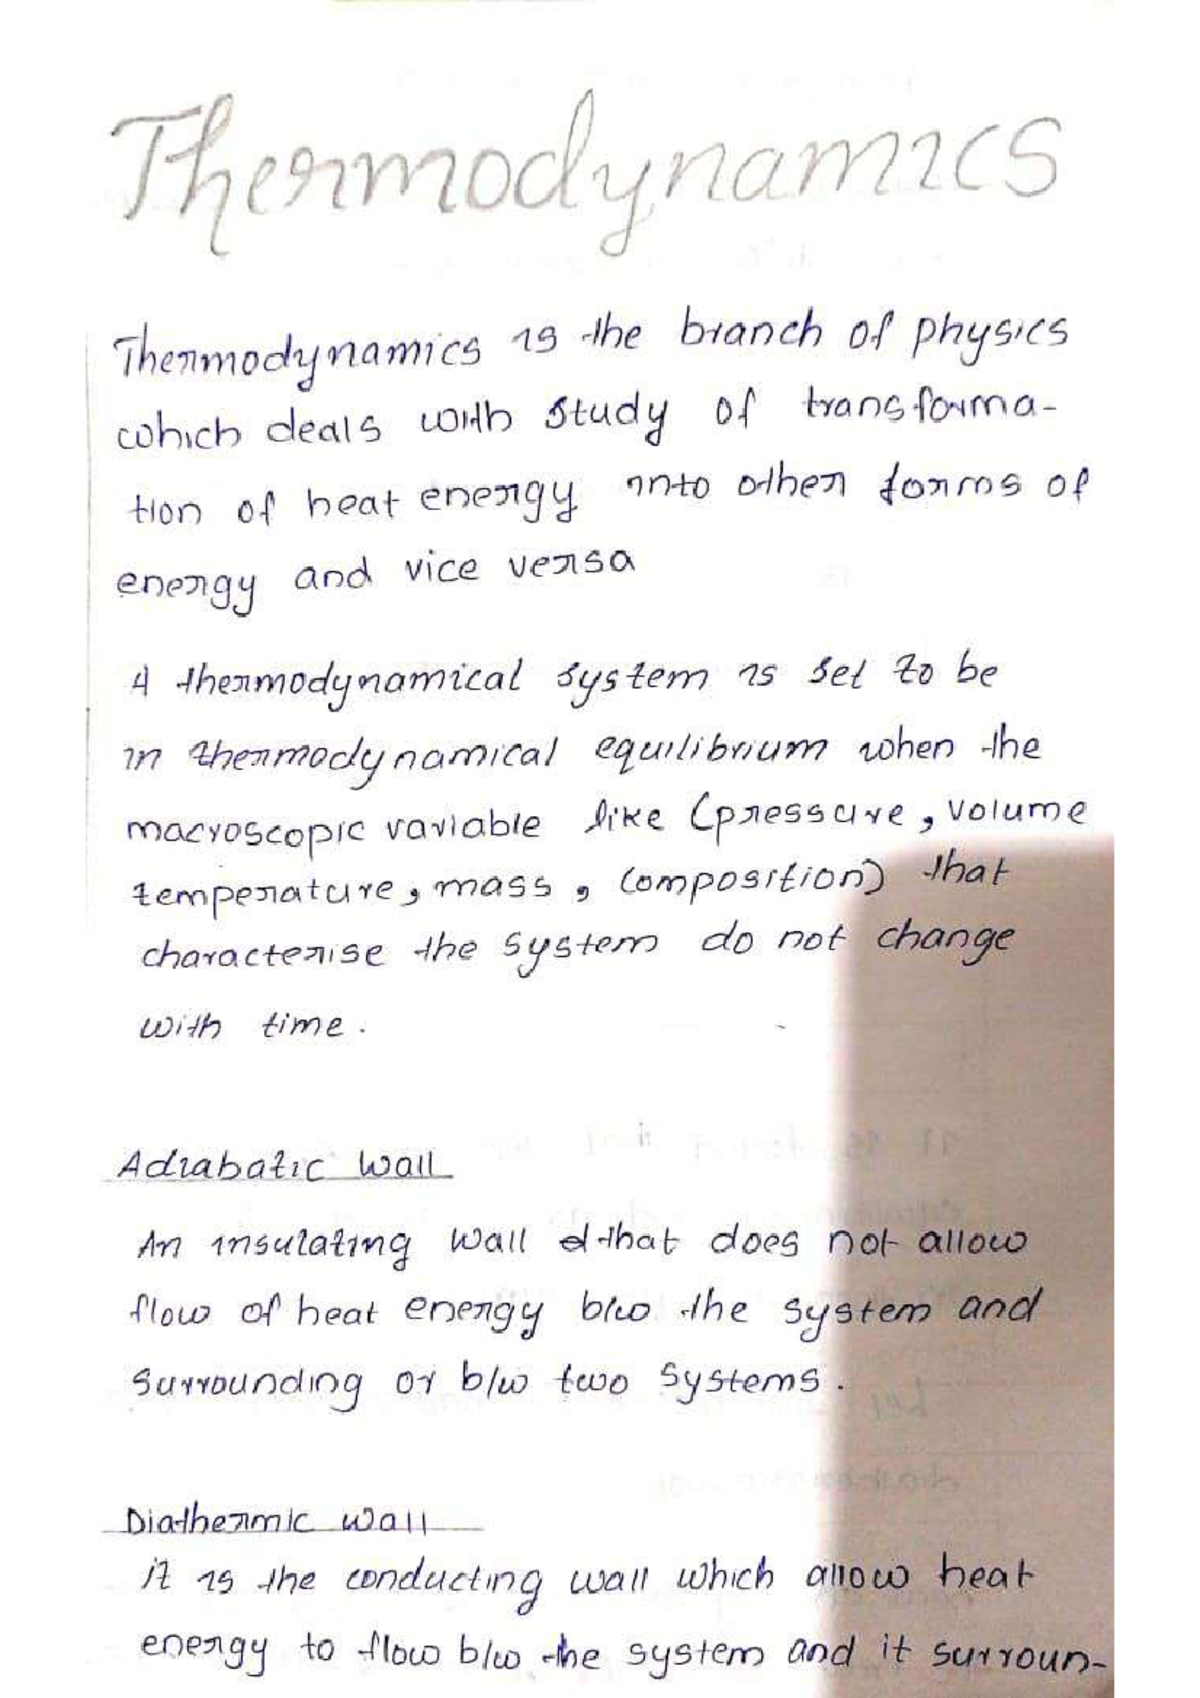 Thermodynamics
Thermodynamics is the branch of physics
which deals with study of transforma-
tion of heat energy into other forms of
energy and vice versa
A thermodynamical system is set to be
in thermodynamical equilibrium when the
macroscopic variable like (pressure, volume
temperature, mass, composition) that
characterise the system do not change
with time.
Adiabatic wall
An insulating wall that does not allow
flow of heat energy b/w the system and
surrounding or b/w two systems.
Diathermic wall
it is the conducting wall which allow heat
energy to flow b/w the system and it surroun-